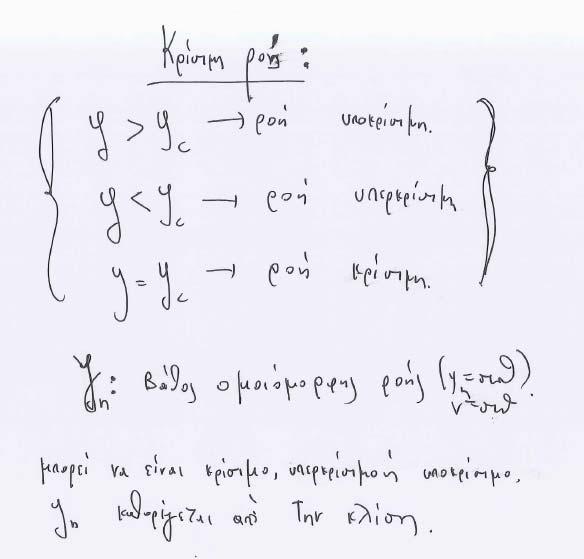 Κρίσιμη ροή:
y > yc → ροή υποκρίσιμη.
y < yc → ροή υπερκρίσιμη
y = yc → ροή κρίσιμη.
yn: Βάθος ομοιόμορφης ροής (yn=σταθ).
v=σταθ
μπορεί να είναι κρίσιμο, υπερκρίσιμο ή υποκρίσιμο.
yn καθορίζεται από την κλίση.